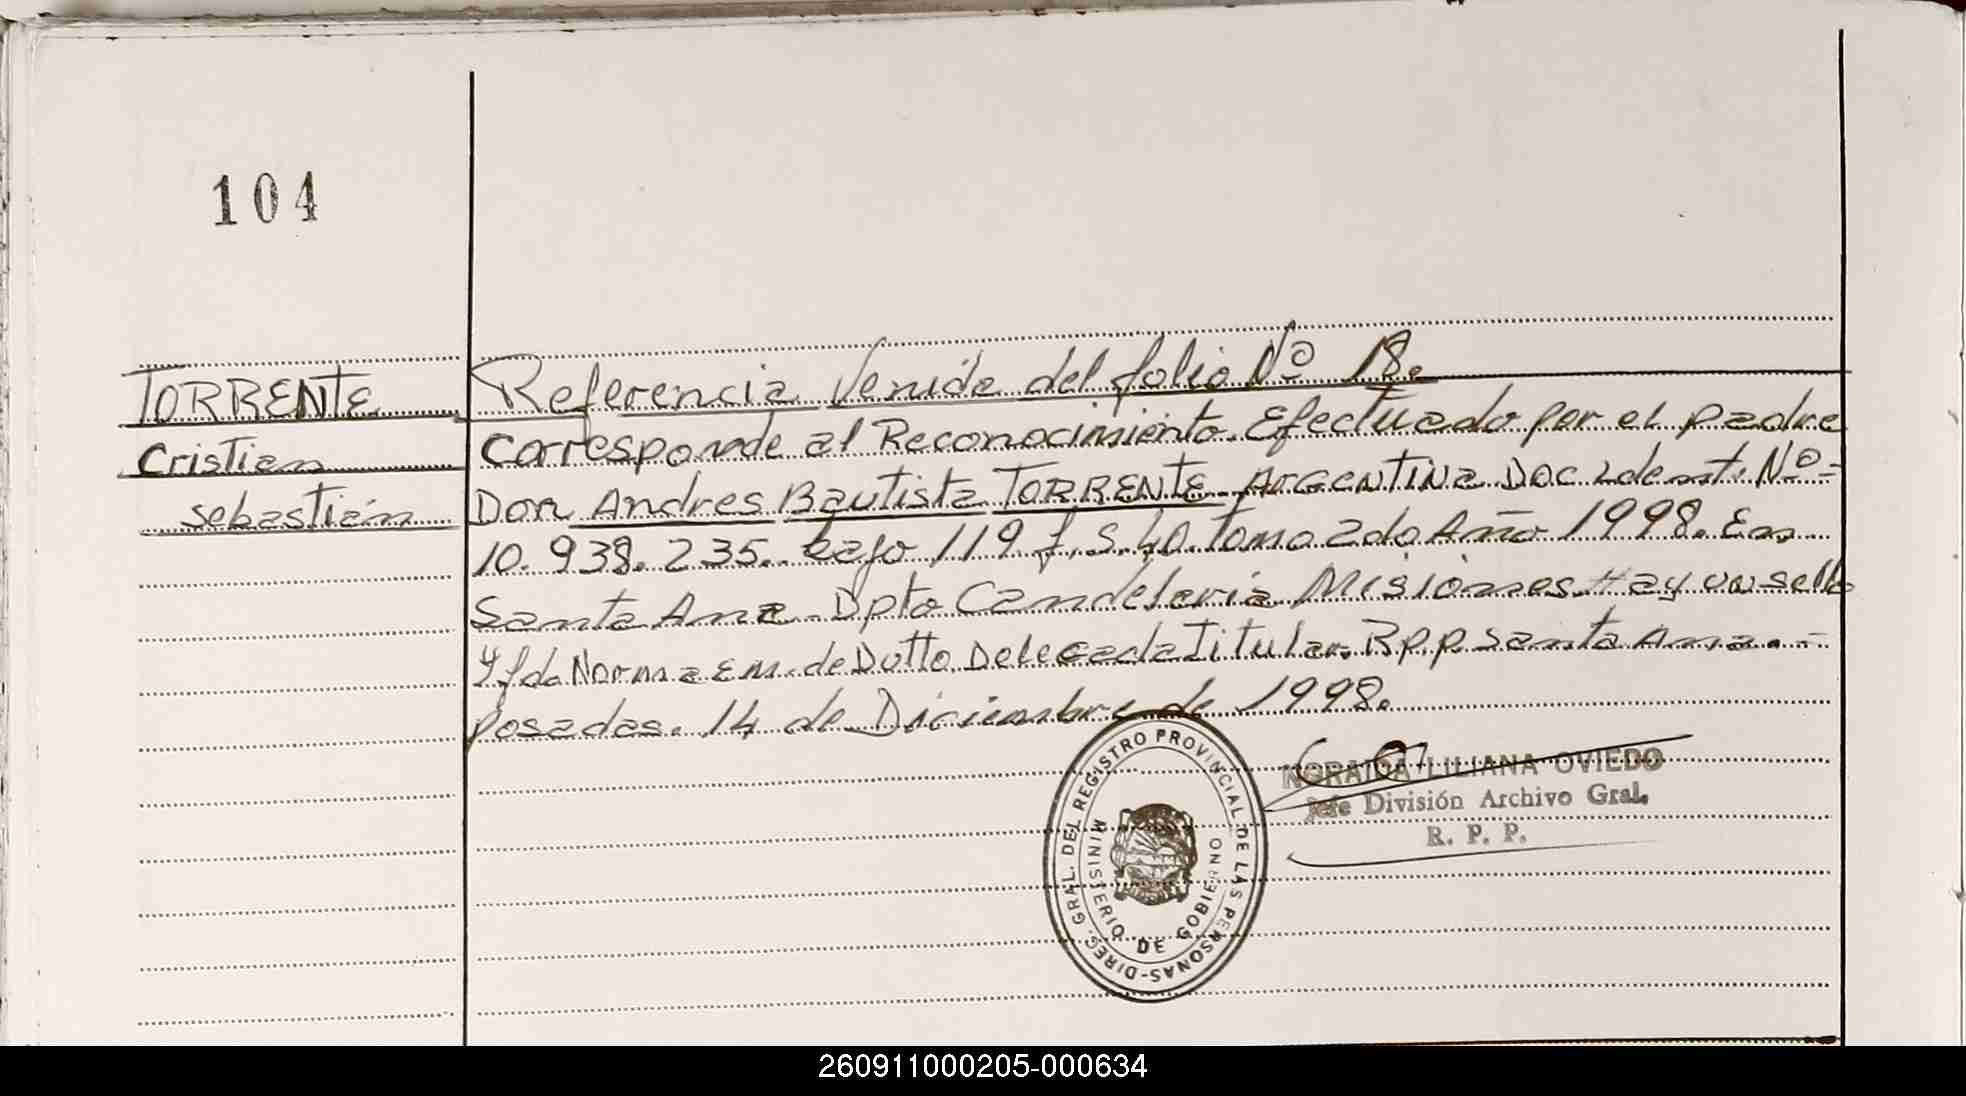 104
TORRENTE
Cristian
Sebastián
Referencia Venida del folio Nº 18.
Corresponde al Reconocimiento. Efectuado por el padre
Don Andres Bautista TORRENTE Argentina Doc Ident. Nº=
10.938.235. bajo 119 f.s. 40. Tomo 2do Año 1998. En
Santa Ana. Dpto Candelaria Misiones. Hay un sello
y fdo. Norma Em. de Dutto Delegada Titular. Rpp. Santa Ana.-
Posadas. 14 de Diciembre de 1998.
DIREC. GRAL. DEL REGISTRO PROVINCIAL DE LAS PERSONAS-
MINISTERIO DE GOBIERNO
NORAIDA LILIANA OVIEDO
Jefe División Archivo Gral.
R. P. P.
260911000205-000634